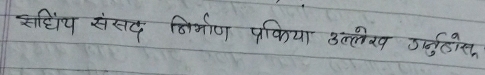 संघिय संसद निर्माण प्रकिया उल्लेख गर्नुहोस्